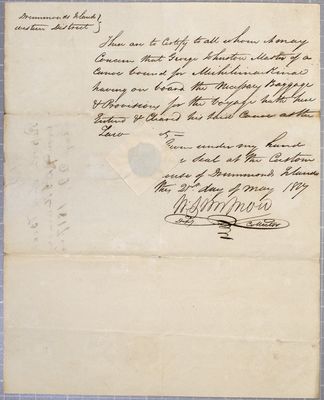 Drummonds Island }
Western District }
These are to Certify to all whom it may
Concern that George Johnston Master of a
Canoe bound for Michilimackinac
having on board the Necessary Baggage
& Provisions for the Voyage hath here
Enterd & Cleard his said Canoe as the
Law
Given under my hand
& Seal at the Custom
ouse of Drummonds Island
this 21st day of May
Dty Collector